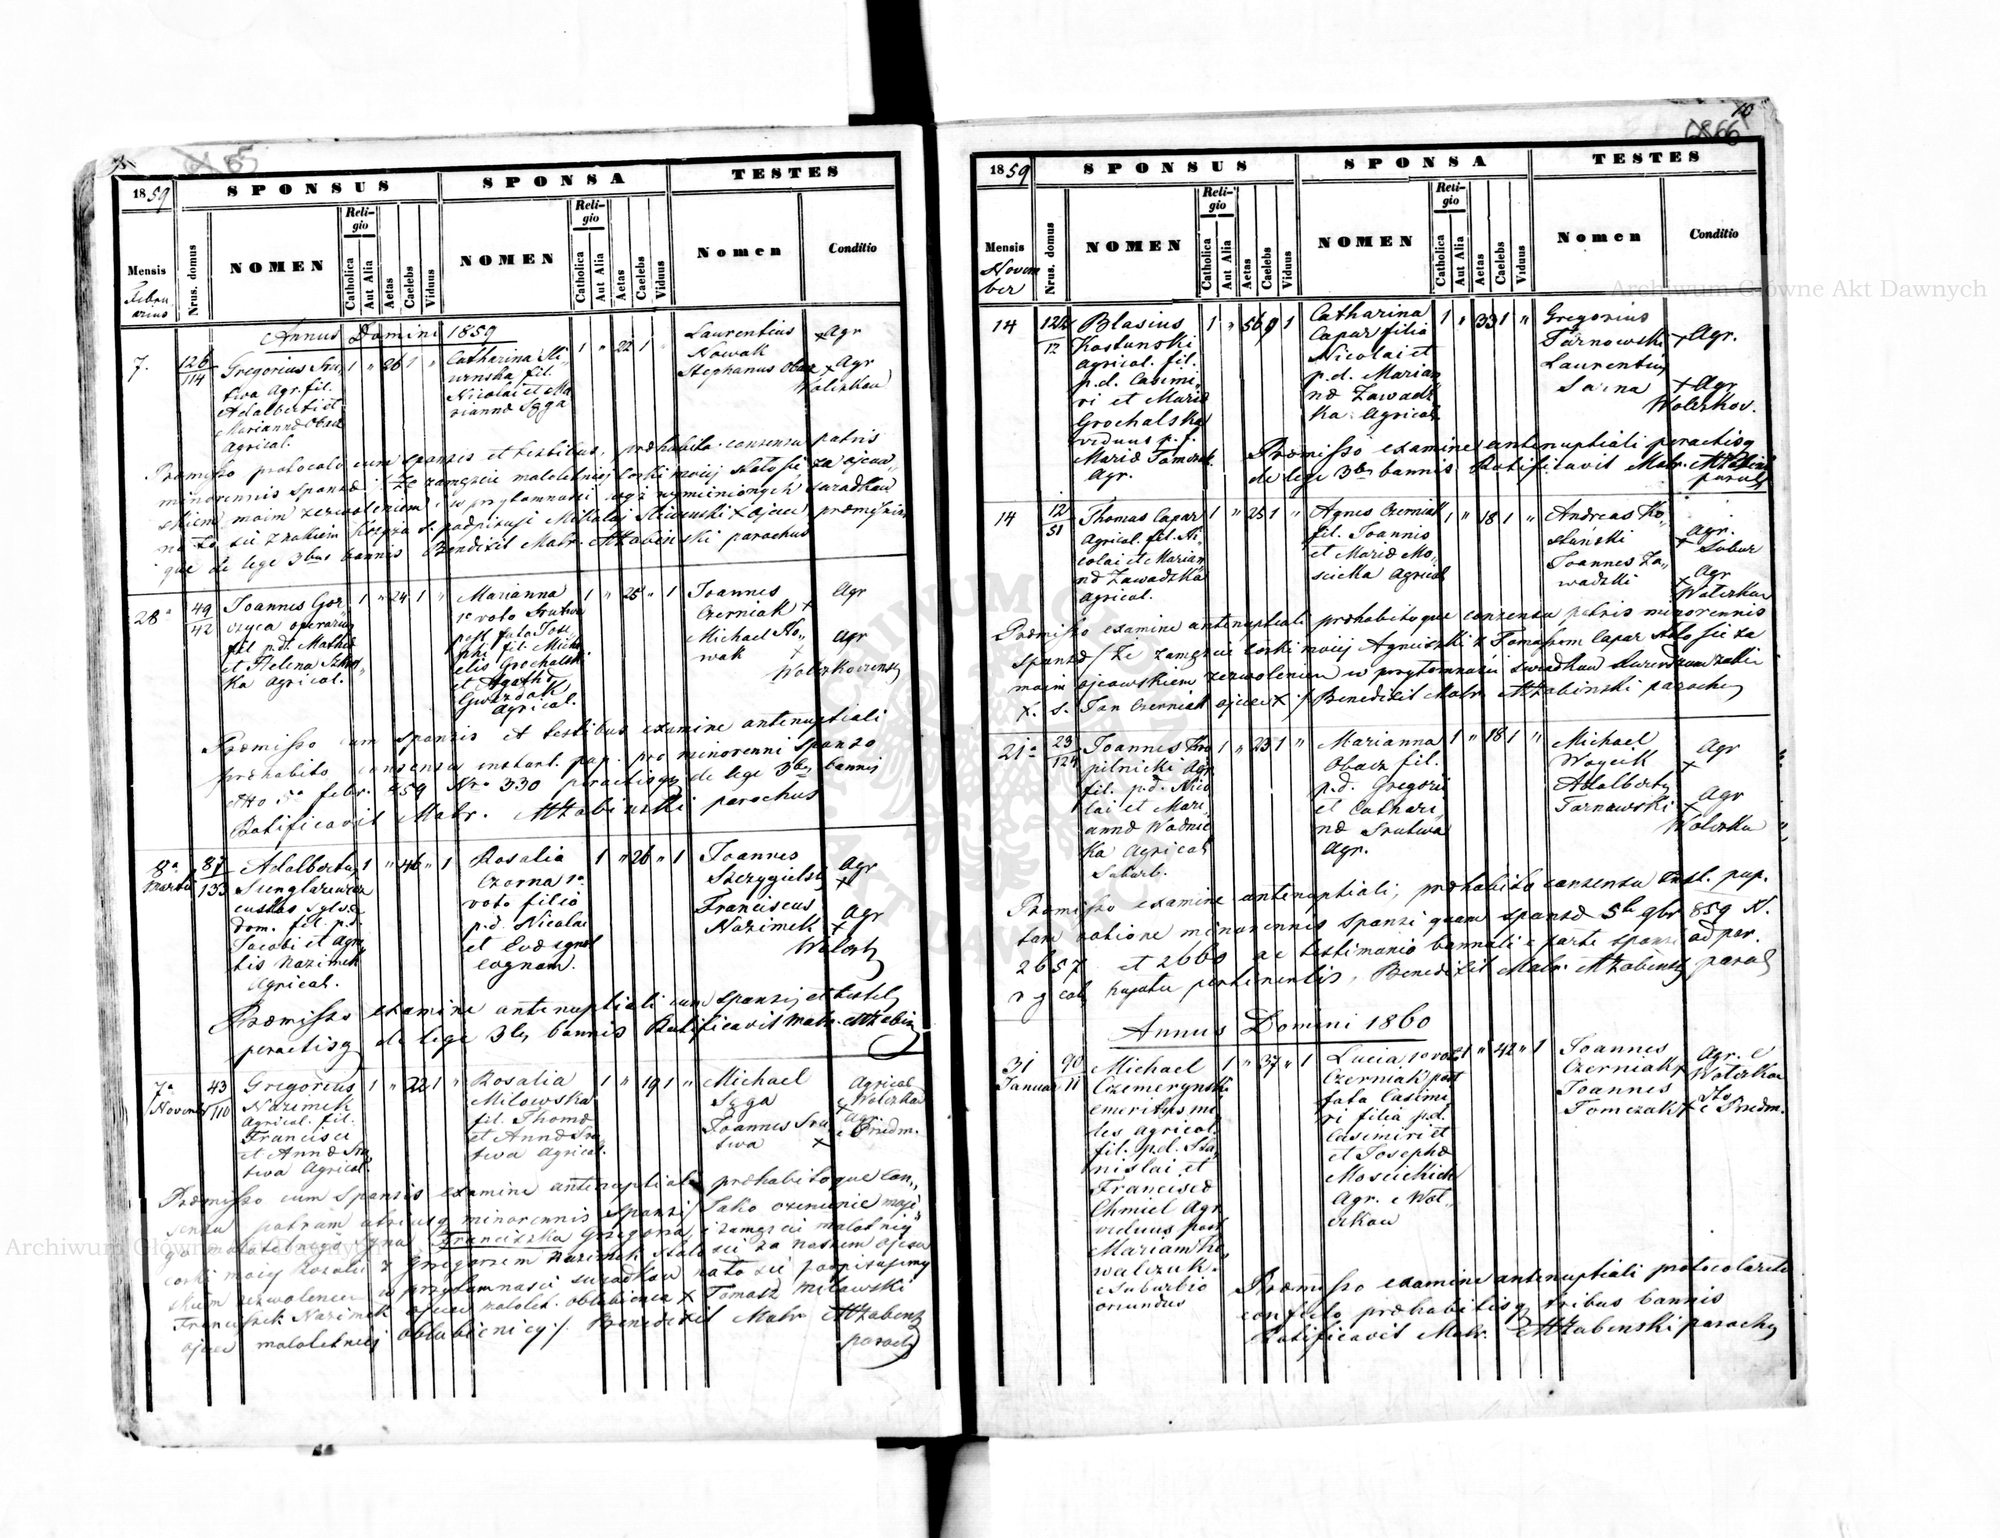 65
1859
SPONSUS
SPONSA
TESTES
Mensis
Februarius
Nrus. domus
NOMEN
Religio
Catholica
Aut Alia
Aetas
Caelebs
Viduus
NOMEN
Religio
Catholica
Aut Alia
Aetas
Caelebs
Viduus
Nomen
Conditio
Annus Domini 1859
7.
126
114
Gregorius Sru,
twa Agr. fil.
Adalberti et
Marianna Obacz
Agricol.
1 " 26 1 "
Catharina
fil.
Nicolai et Ma
rianna Sęga
1 " 22 1
Laurentius
Nowak
Stephanus Obacz
Agr
Agr
Præmisso protocolo cum sponsis et testibus, præhabito consensu patris
minorennis sponsæ /: Że zamęście małoletniej córki mojej stało się za ojcow,,
skiem moim zezwoleniem, w przytomności wyż wymienionych świadków
na to się znakiem krzyża S. podpisuję Mikołaj
que de lege 3bus bannis Benedixit Matr. parochus
28a
49
42
Joannes Gor
czyca operarius
fil. p.d. Mathia
et Helena
ka agricol.
1 " 24 1 "
Marianna
1o voto Srutwa
post fata Jose,
phi fil. Micha
elis Grochalski
et Agatha
Gwozdak
agricol.
1 " 25 " 1
Joannes
Czerniak +
Michael No,
wak
Agr
Agr
Præmisso cum sponsis et testibus examine antenuptiali
præhabito consensu instant. pup. pro minorenni sponso
dtto 5a febr. 859 Nro 330 peractisq de lege 3bus bannis
Ratificavit Matr. parochus
8a
Martii
87
133
Adalbertus
dom. fil. p.d.
Jacobi et Agne
tis Nazimek
Agricol.
1 " 46 " 1
Rosalia
Czorna 1o
voto filia
p.d. Nicolai
et Eva
cognom.
1 " 26 " 1
Joannes
Szczygielski
Franciscus
Nazimek
Agr
Agr
Præmisso examine antenuptiali cum sponsis et testib
peractisq de lege 3bus bannis Ratificavit Matr.
7a
Novemb
43
110
Gregorius
Nazimek
Agricol. fil.
Francisci
et Anna Sru
twa Agricol.
1 " 22 1 "
Rosalia
Milowska
fil. Thoma
et Anna Sru
twa Agricol.
1 " 19 1 "
Michael
Sęga
Joannes Sru,
twa
Agricol
Agr.
e Przedm.
Præmisso cum sponsis examine antenuptiali præhabitoque con,,
sensu patrum utriusq minorennis sponsi / Jako ożenienie moje,
go małoletniego syna Franciszka Grzegorza, i zamęście małoletniej
córki mojej Rozalii z Grzegorzem Nazimek stało się za naszem ojcow
skiem zezwoleniem w przytomności świadków na to się podpisujemy
Franciszek Nazimek ojciec małolet. oblubieńca x Tomasz Milowski
ojciec małoletniej oblubienicy /. Benedixit Matr.
paroch
66
1859
SPONSUS
SPONSA
TESTES
Mensis
Novem
ber
Nrus. domus
NOMEN
Religio
Catholica
Aut Alia
Aetas
Caelebs
Viduus
NOMEN
Religio
Catholica
Aut Alia
Aetas
Caelebs
Viduus
Nomen
Conditio
14
122
12
Blasius
Kostunski
Agricol. fil.
p.d. Casimi,
ri et Maria
Grochalska
viduus p.f.
Maria Tomczak
Agr.
1 " 56 " 1
Catharina
Capar filia
Nicolai et
p.d. Marian
na Zawadz
ka Agricol.
1 " 33 1 "
Gregorius
Tarnowski
Laurentius
Sarna
Agr.
Agr
Præmisso examine antenuptiali peractisq
de lege 3bus bannis Ratificavit Matr.
paroch
14
12
51
Thomas Capar
Agricol. fil. Ni,
colai et Marian
na Zawadzka
Agricol.
1 " 25 1 "
Agnes Czerniak
fil. Joannis
et Maria Mo,
scicka Agricol
1 " 18 1 "
Andreas Ko,
stunski
Joannes Za,
wadzki
Agr.
Subur
Agr
Præmisso examine antenuptiali præhabitoque consensu patris minorennis
sponsæ /: Że zamęście córki mojej Agnieszki z Tomaszem Capar stało się za
moim ojcowskiem zezwoleniem w przytomności świadków
x. S. Jan Czerniak ojciec x / Benedixit Matr. paroch
21a
23
124
Joannes Kro
pilnicki Agr
fil. p.d. Nico
lai et Mari,
anna Wodnic
ka Agricol
Suburb.
1 " 23 1 "
Marianna
Obacz fil.
p.d. Gregorii
et Cathari
na Srutwa
Agr.
1 " 18 1 "
Michael
Wojcik
Adalbertus
Tarnawski
Agr
Agr
Præmisso examine antenuptiali, præhabito consensu inst. pup.
tam ratione minorennis sponsi quam sponsæ 5ta 9br 859 N.
2657 et 2660 ac testimonio bannali e parte sponsi ad par.
pertinentis, Benedixit Matr. paroch
Annus Domini 1860
31
Januar
90
11
Michael
Czemerynski
emeritus mi
les agricol.
fil. p.d. Sta,
nislai et
Francisca
Chmiel Agr
viduus post
Mariam Ko,
walczuk.
e Suburbio
oriundus
1 " 37 " 1
Lucia 1o voto
Czerniak post
fata Casimi
ri filia p.d.
Casimiri et
et Josepha
Moscickich
Agr.
1 " 42 " 1
Joannes
Czerniak
Joannes
Tomczak
Agr. e
e Przedm.
Præmisso examine antenuptiali protocolariter
confecto, præhabitisq tribus bannis
Ratificavit Matr. paroch
Archiwum Główne Akt Dawnych
Archiwum Główne Akt Dawnych